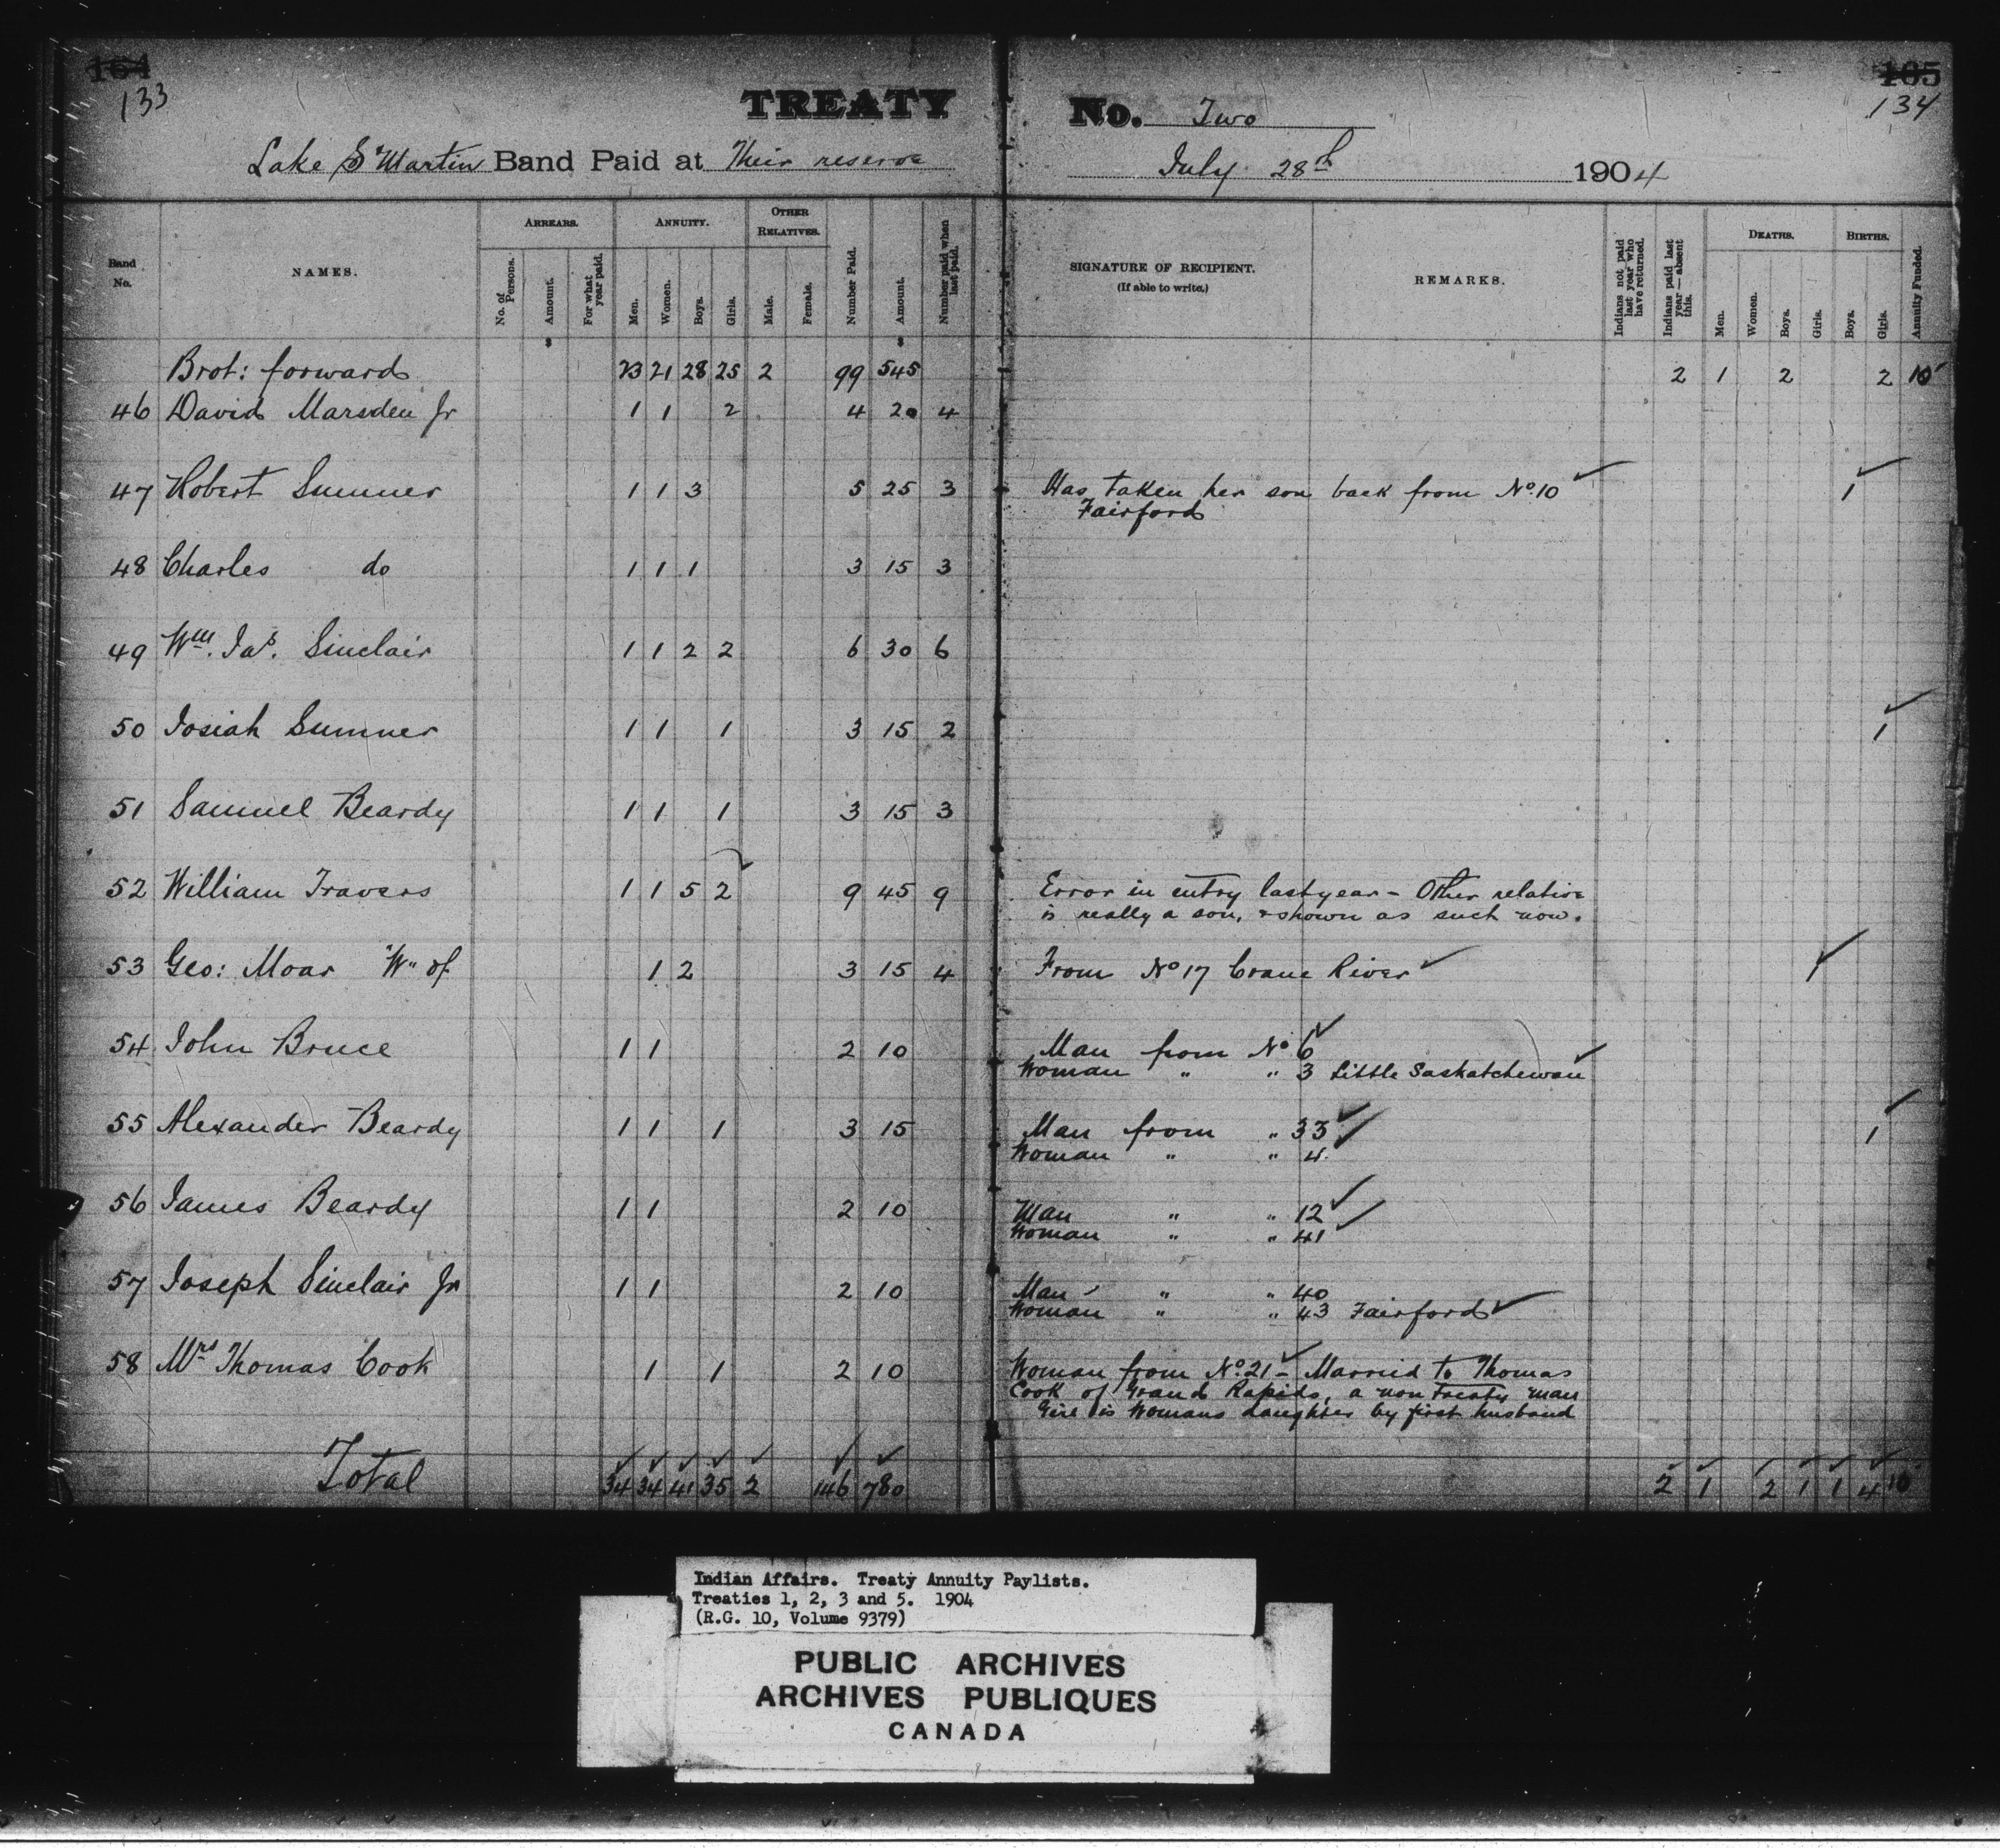 164 165
133 134
TREATY No. Two
Lake St Martin Band Paid at Their reserve July 28th 1904
Band No. NAMES. ARREARS. No. of Persons. Amount. For what year paid. ANNUITY. Men. Women. Boys. Girls. OTHER RELATIVES. Male. Female. Number Paid. Amount. Number paid when last paid. SIGNATURE OF RECIPIENT. (If able to write.) REMARKS. Indians not paid last year who have returned. Indians paid last year — absent this. DEATHS. Men. Women. Boys. Girls. BIRTHS. Boys. Girls. Annuity Funded.
$ $
Brot: forward 23 21 28 25 2 99 545 2 1 2 2 10
46 David Marsden Jr 1 1 2 4 20 4
47 Robert Sumner 1 1 3 5 25 3 Has taken her son back from No. 10 1
Fairford
48 Charles do 1 1 1 3 15 3
49 Wm. Jas. Sinclair 1 1 2 2 6 30 6
50 Josiah Sumner 1 1 1 3 15 2 1
51 Samuel Beardy 1 1 1 3 15 3
52 William Travers 1 1 5 2 9 45 9 Error in entry last year - Other relative
is really a son, & shown as such now.
53 Geo: Moar W" of 1 2 3 15 4 From No 17 Crane River 1
54 John Bruce 1 1 2 10 Man from No 6
Woman " " 3 Little Saskatchewan
55 Alexander Beardy 1 1 1 3 15 Man from " 33 1
Woman " " 4.
56 James Beardy 1 1 2 10 Man " " 12
Woman " " 41
57 Joseph Sinclair Jr 1 1 2 10 Man " " 40
Woman " " 43 Fairford
58 Mrs Thomas Cook 1 1 2 10 Woman from No. 21 - Married to Thomas
Cook of Grand Rapids, a non treaty man
Girl is Womans daughter by first husband
Total 34 34 41 35 2 146 780 2 1 2 1 1 4 10
Indian Affairs. Treaty Annuity Paylists.
Treaties 1, 2, 3 and 5. 1904
(R.G. 10, Volume 9379)
PUBLIC ARCHIVES
ARCHIVES PUBLIQUES
CANADA